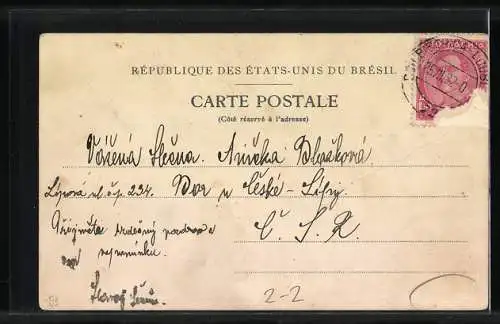 RÉPUBLIQUE DES ÉTATS-UNIS DU BRÉSIL
CARTE POSTALE
(Côté réservé à l'adresse)
Vážená slečna. Anička
Lipová ul. čp. 234. Bor u České-Lípy.
Přijměte srdečný pozdrav a
vzpomínku.
Č. S. R.
2-2